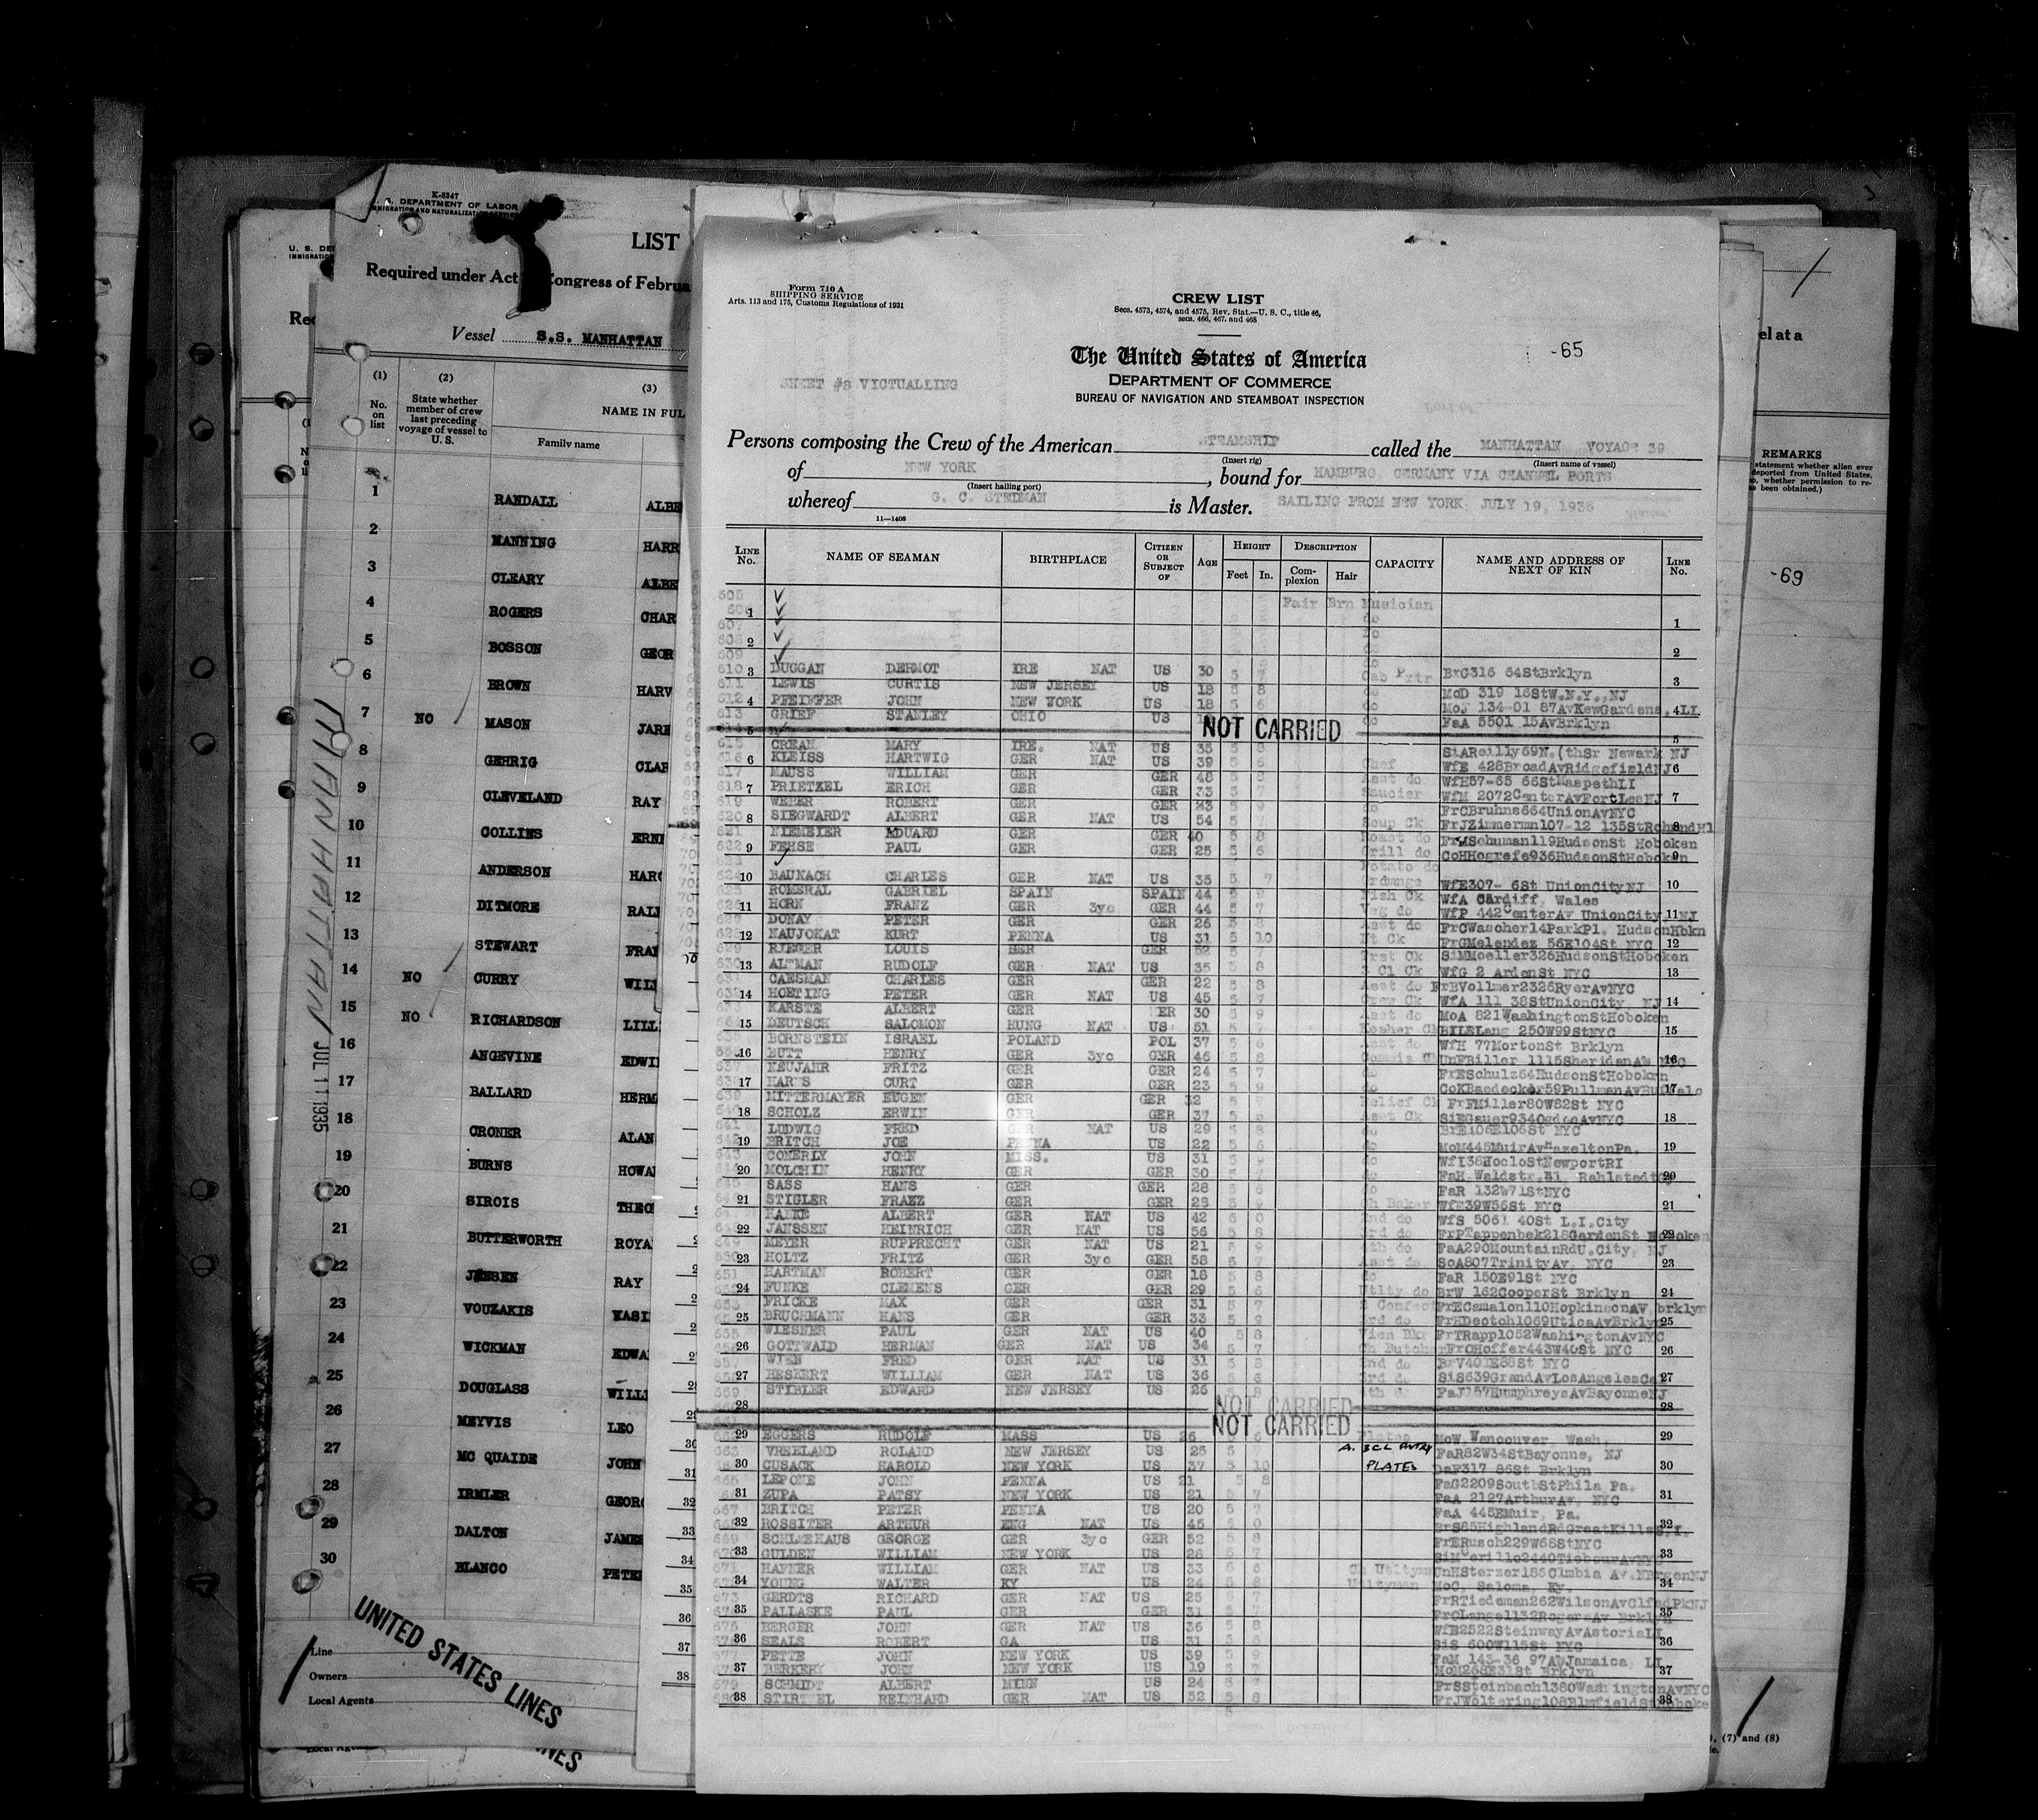 K-8347
U. S. DEPARTMENT OF LABOR
IMMIGRATION AND NATURALIZATION SERVICE
LIST
Required under Act Congress of Februa
Vessel S.S. MANHATTAN
(1) (2) (3)
No. on list
State whether member of crew last preceding voyage of vessel to U. S.
NAME IN FUL
Family name
1 RANDALL ALBE
2 MANNING HARR
3 CLEARY ALBE
4 ROGERS CHAR
5 BOSSON GEOR
6 BROWN HARV
7 NO MASON JARE
8 GEHRIG CLAR
9 CLEVELAND RAY
10 COLLINS ERNE
11 ANDERSON HARO
12 DITMORE
13 STEWART FRAN
14 NO CURRY WILL
15 NO RICHARDSON LILL
16 ANGEVINE EDWI
17 BALLARD HERM
18 CRONER ALAN
19 BURNS HOWA
20 SIROIS THEO
21 BUTTERWORTH ROYA
22 JENSEN RAY
23 VOUZAKIS VASI
24 WICKMAN EDWA
25 DOUGLASS WILLI
26 MEYVIS LEO
27 MC QUAIDE JOHN
28 IRMLER GEORG
29 DALTON JAMES
30 BLANCO PETE
MANHATTAN JUL 11 1935
Line
Owners
Local Agents
UNITED STATES LINES
Form 710 A
SHIPPING SERVICE
Arts. 113 and 175, Customs Regulations of 1931
CREW LIST
Secs. 4573, 4574, and 4575, Rev. Stat.—U. S. C., title 46, secs. 466, 467, and 468
-65
The United States of America
SHEET #8 VICTUALLING
DEPARTMENT OF COMMERCE
BUREAU OF NAVIGATION AND STEAMBOAT INSPECTION
Persons composing the Crew of the American STEAMSHIP called the MANHATTAN VOYAGE 39
(Insert rig) (Insert name of vessel)
of NEW YORK, bound for HAMBURG, GERMANY VIA CHANNEL PORTS
(Insert hailing port)
whereof G. C. STEDMAN is Master. SAILING FROM NEW YORK JULY 19, 1935
11—1408
LINE No. NAME OF SEAMAN BIRTHPLACE CITIZEN OR SUBJECT OF AGE HEIGHT Feet In. DESCRIPTION Complexion Hair CAPACITY NAME AND ADDRESS OF NEXT OF KIN LINE No.
Fair Brn Musician
DUGGAN DERMOT IRE NAT US 30 5 7 Cab Prtr BrG316 64StBrklyn
LEWIS CURTIS NEW JERSEY US 18 5 8 do MoD 319 16StW.N.Y.,NJ
PFEIFFER JOHN NEW YORK US 18 5 6 do MoJ 134-01 87AvKewGardens,LI
GRIEF STANLEY OHIO US do FaA 5501 15AvBrklyn
NOT CARRIED
CREAN MARY IRE. NAT US 35 SiAReilly69N. Newark NJ
KLEISS HARTWIG GER NAT US 39 5 6 Chef WfE 428BroadAvRidgefieldNJ
MAUSS WILLIAM GER GER 48 Asst do WfH57-65 66StMaspethLI
PRIETZEL ERICH GER GER 33 5 7 Saucier WfM 2072CenterAvFortLeeNJ
WEBER ROBERT GER GER 43 5 9 do FrCBruhns664UnionAvNYC
SIEGWARDT ALBERT GER NAT US 54 Soup Ck FrJZimmermn107-12 135StRchmndHl
NIEMEIER EDUARD GER GER 40 5 8 Roast do Schuman119HudsonSt Hoboken
FEHSE PAUL GER GER 25 5 6 Grill do CoHHogrefe936HudsonStHoboken
Potato do
BAUNACH CHARLES GER NAT US 35 5 7 WfE307- 6St UnionCityNJ
ROMERAL GABRIEL SPAIN SPAIN 44 Fish Ck WfA Cardiff, Wales
HORN FRANZ GER 3yc GER 44 5 7 Veg do WfP 442CenterAv UnionCity NJ
DONAY PETER GER GER 26 5 8 Asst do FrCWascher14ParkPl. HudsonHbkn
NAUJOKAT KURT PENNA US 31 5 10 Nt Ck FrGMelendez 56E104St NYC
LOUIS GER GER 52 Trst Ck SiMMoeller326HudsonStHoboken
ALTMAN RUDOLF GER NAT US 35 5 8 3 Cl Ck WfG 2 ArdenSt NYC
CAESMAN CHARLES GER GER 22 5 8 Asst do FrBVollmer2326RyerAvNYC
HOETING PETER GER NAT US 45 5 7 Crew Ck WfA 111 38StUnionCity, NJ
KARSTE ALBERT GER GER 30 5 9 Asst do MoA 821WashingtonStHoboken
DEUTSCH SALOMON HUNG NAT US 51 Kosher Ck BILELang 250W99StNYC
BORNSTEIN ISRAEL POLAND POL 37 5 6 Asst do WfH 77MortonSt Brklyn
BUTT HENRY GER 3yc GER 46 5 8 UnFBiller 1115SheridanAv NYC
NEUJAHR FRITZ GER GER 24 5 7 do FrESchulz64HudsonStHoboken
HARMS CURT GER GER 23 5 9 do CoKBaedecker59PullmanAvBuffalo
MITTERMAYER EUGEN GER GER 32 Relief Ck FrFMiller80W82St NYC
SCHOLZ ERWIN GER GER 37 Asst Ck SiEGauer9340gdenAvNYC
LUDWIG FRED GER NAT US 29 5 8 do BrE106E106St NYC
BRITCH JOE PENNA US 22 5 6 do MoM445MuirAvHazeltonPa.
CONERLY JOHN MISS. US 31 do WfI38HocloStNewportRI
MOLCHIN HENRY GER GER 30 do FaH Waldstr.31 Rahlstedt
SASS HANS GER GER 28 5 6 do FaR 132W71StNYC
STIGLER FRANZ GER GER 23 Ch Baker WfE39W56St NYC
HANKE ALBERT GER NAT US 42 6 0 2nd do WfS 5061 40St L.I.City
JANSSEN HEINRICH GER NAT US 56 5 8 3rd do FrPTappenbek218GardenSt Hoboken
MEYER RUPPRECHT GER NAT US 21 5 9 4th do FaA290MountainRdU.City, NJ
HOLTZ FRITZ GER 3yc GER 58 5 7 Asst do SoA807TrinityAv, NYC
HARTMAN ROBERT GER GER 18 5 8 do FaR 150E91St NYC
FUNKE CLEMENS GER GER 29 5 6 Utlty do BrW 162CooperSt Brklyn
FRICKE MAX GER GER 31 5 7 2 Confect FrECamalon110HopkinsonAv brklyn
BRUCHMANN HANS GER GER 33 5 9 3rd do FrHDeetch1069UticaAvBrklyn
WIESNER PAUL GER NAT US 40 5 8 Vien Bkr FrTRapp1052WashingtonAvNYC
GOTTWALD HERMAN GER NAT US 34 5 7 Ch Butcher FrOHoffer443W46St NYC
WIEN FRED GER NAT US 31 5 8 2nd do BrV401E88St NYC
BESKERT WILLIAM GER NAT US 36 5 6 3rd do SiS639GrandAvLosAngelesCa
STIBLER EDWARD NEW JERSEY US 26 4th do FaJ157HumphreysAvBayonneNJ
NOT CARRIED
NOT CARRIED
EGGERS RUDOLF MASS US 26 Plates MoW Vancouver, Wash.
VREELAND ROLAND NEW JERSEY US 25 A. 3CL PNTRY FaR82W34StBayonne, NJ
CUSACK HAROLD NEW YORK US 37 5 10 PLATES DaF317 86St Brklyn
LEPONE JOHN PENNA US 21 5 8 FaG2209SouthStPhila Pa.
ZUPA PATSY NEW YORK US 21 5 7 FaA 2127ArthurAv, NYC
BRITCH PETER PENNA US 20 5 7 FaA 445EMuir, Pa.
ROSSITER ARTHUR ENG NAT US 45 6 0 BrS85HighlandRdGreatKillsS.I.
SCHLEEHAUS GEORGE GER 3yc GER 52 5 8 FrERusch229W68StNYC
GULDEN WILLIAM NEW YORK US 28 5 7 SiMCerillo2440TiebourAvNYC
HAFNER WILLIAM GER NAT US 33 5 6 Ch Utltyman UnHSterzer185Clmbia Av.NBrgenNJ
YOUNG WALTER KY US 24 5 8 Utltyman MoC, Saloma, Ky.
GERDTS RICHARD GER NAT US 25 5 7 FrRTiedeman262WilsonAvClfsdPkNJ
PALLASKE PAUL GER GER 31 5 7 FrCLange1132RogersAv Brklyn
BERGER JOHN GER NAT US 36 5 8 WfB2522SteinwayAvAstoriaLI
SEALS ROBERT GA US 31 5 6 SiS 600W115St NYC
PETTE JOHN NEW YORK US 39 5 9 FaM 143-36 97AvJamaica, LI
BERKERY JOHN NEW YORK US 19 5 7 MoM268E31St Brklyn
SCHMIDT ALBERT MINN US 24 5 7 FrSSteinbach1380WashingtonAvNYC
STIRTZEL REINHARD GER NAT US 52 5 8 FrJWoltering108BlmfieldStHoboke
el at a
REMARKS
statement whether alien ever deported from United States,
so, whether permission to re-
s been obtained.)
-69
(7) and (8)